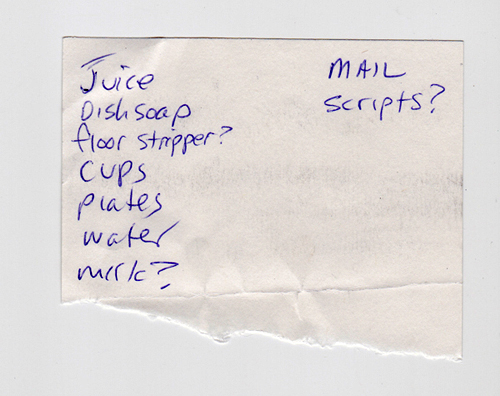 Juice
Dish soap
floor stripper?
cups
plates
water
milk?
MAIL
scripts?